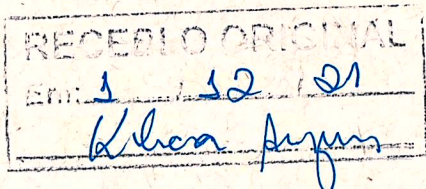 RECEBI O ORIGINAL
Em: 1 / 12 / 21